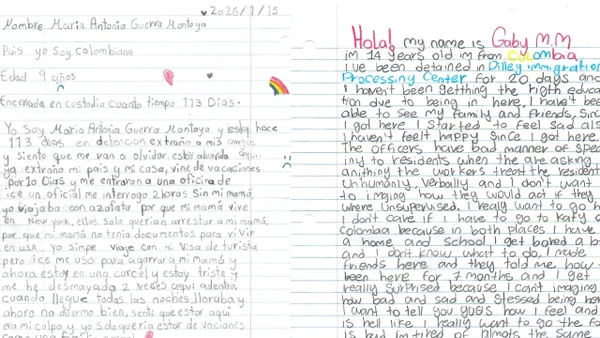 ♥2026/1/15
Nombre Maria Antonia Guerra Montoya
Pais yo Soy colombiana
Edad 9 años
Encerrada en custodio Cuanto tiempo 113 Dias.
Yo Soy Maria Antonia Guerra Montoya y estoy hace
113 dias en detencion extraño a mis amigos
y siento que me van a olvidar. estoy aburrida aqui
ya extraño mi pais y mi casa, vine de vacaciones
por 10 Dias y me entraron a una oficina de
ice un oficial me interrogo 2 horas Sin mi mamá,
yo viajaba con azafata por que mi mamá vive
en New york, ellos solo querian arrestar a mi mamá
por que mi mamá no tenia documentos para vivir
en usa. Yo simpre viaje con mi Visa de turista
pero ice me uso para agarrar a mi mamá y
ahora estoy en una carcel y estoy triste y
me he desmayado 2 veces aqui adentro,
cuando llegue todas las noches lloraba y
ahora no duermo bien, senti que estar aqui
era mi culpa y yo solo queria estar de vaciones
como una
Hola! my name is Gaby M.M
im 14 years old im from colombia
I've been detained in Dilley immigration
Processing Center for 20 days and
I haven't been getthing the rigth educa
tion due to being in here, I haven't be
able to see my family and friends, Sinc
I got here I started to feel sad als
I haven't felt happy since I got here.
The officers have bad manner of spea
ing to residents when the are asking
anithing the workers treat the residents
unhumanly, verbally and I don't want
to imging how they would act if they
where unsupervised. I really want to go h
I don't care if I have to go to Katy o
Colombia because in both places I have
a home and school I get bored a b
and I don't know what to do, I made
friends here and they told me how
been here for 7 months and I get
really surprised because I can't imaging
how bad and sad and stessed being her
I want to tell you guys how I feel and
is hell like I really want to go the fo
is bad im tired of almots the same